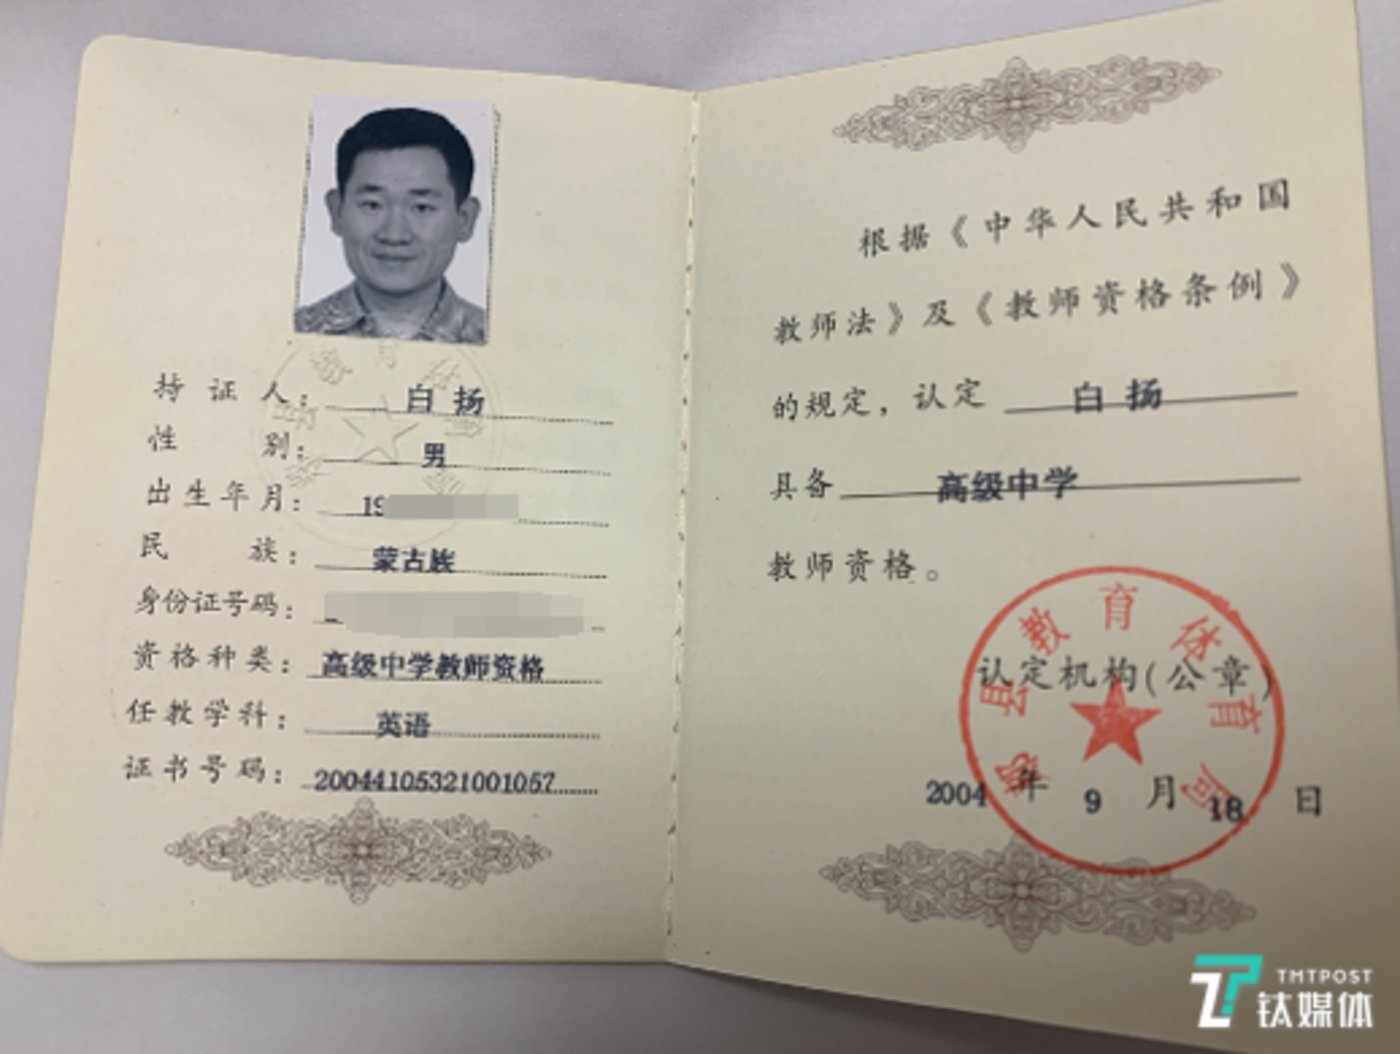 持证人： 白扬
性别： 男
出生年月： 19
民族： 蒙古族
身份证号码：
资格种类： 高级中学教师资格
任教学科： 英语
证书号码： 20044105321001057
根据《中华人民共和国
教师法》及《教师资格条例》
的规定，认定 白扬
具备 高级中学
教师资格。
县教育体育局
认定机构(公章)
2004 年 9 月 18 日
TMTPOST
钛媒体